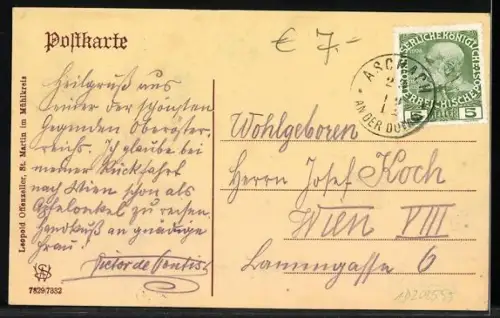 Postkarte
€ 7,-
Heilgruß aus
einer der schönsten
Gegenden Oberöster-
reichs. Ich glaube bei
meiner Rückfahrt
nach Wien schon als
zu reisen.
Handkuß an gnädige
Frau!
Victor de Pontis
Wohlgeboren
Herrn Josef Koch
Wien VIII
Lammgasse 6
ASCHACH
AN DER DONAU
5
Leopold Offenzeller, St. Martin im Mühlkreis
7829/7332